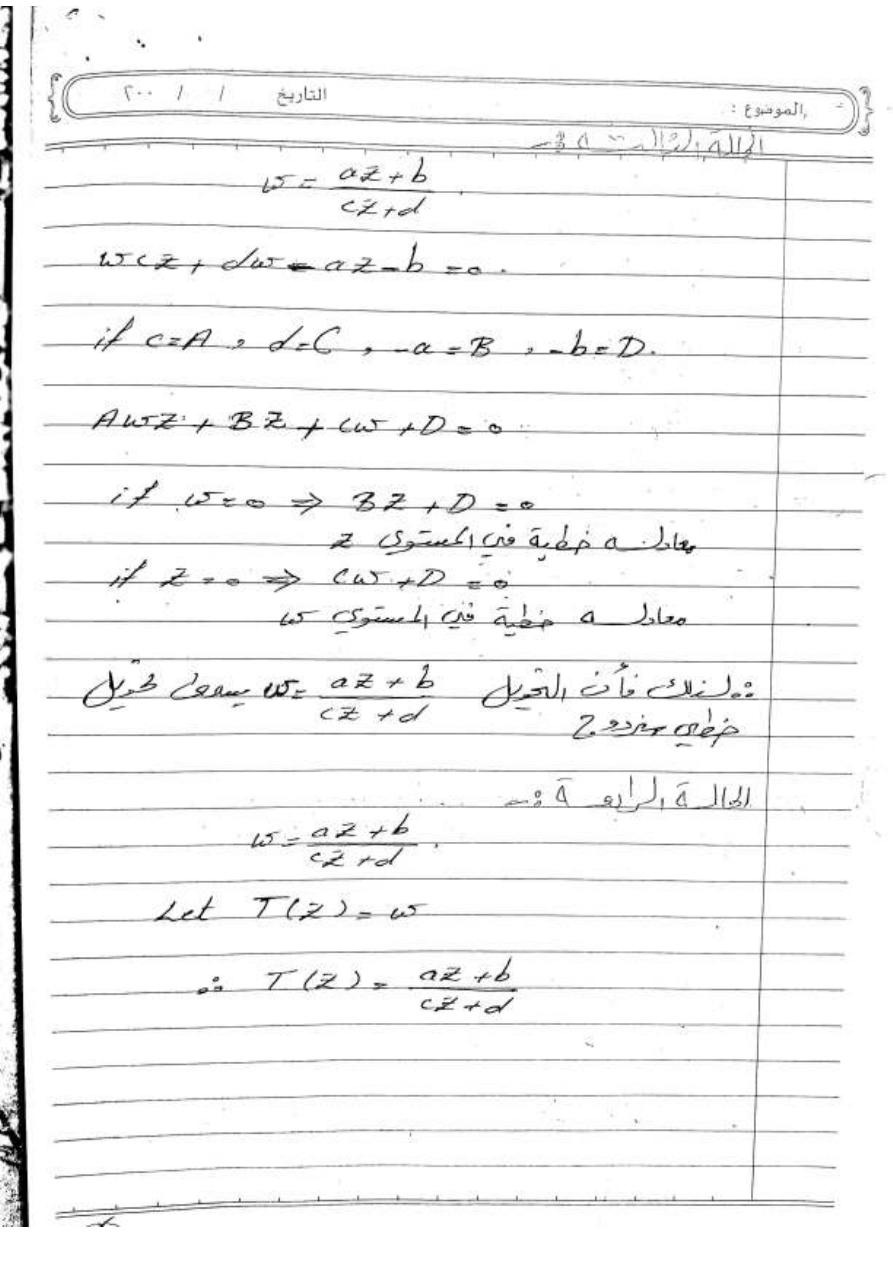 الموضوع :
التاريخ / / ٢٠٠
الحالة الثالثة :-
w = (az + b) / (cz + d)
wcz + dw - az - b = 0.
if c = A , d = C , -a = B , -b = D.
Awz + Bz + cw + D = 0
if w = 0 ⇒ Bz + D = 0
معادلة خطية في المستوى z
if z = 0 ⇒ cw + D = 0
معادلة خطية في المستوي w
∴ لذلك فأن التحويل w = (az + b) / (cz + d) يسمى تحويل
خطي مزدوج
الحالة الرابعة :-
w = (az + b) / (cz + d) .
Let T(z) = w
∴ T(z) = (az + b) / (cz + d)